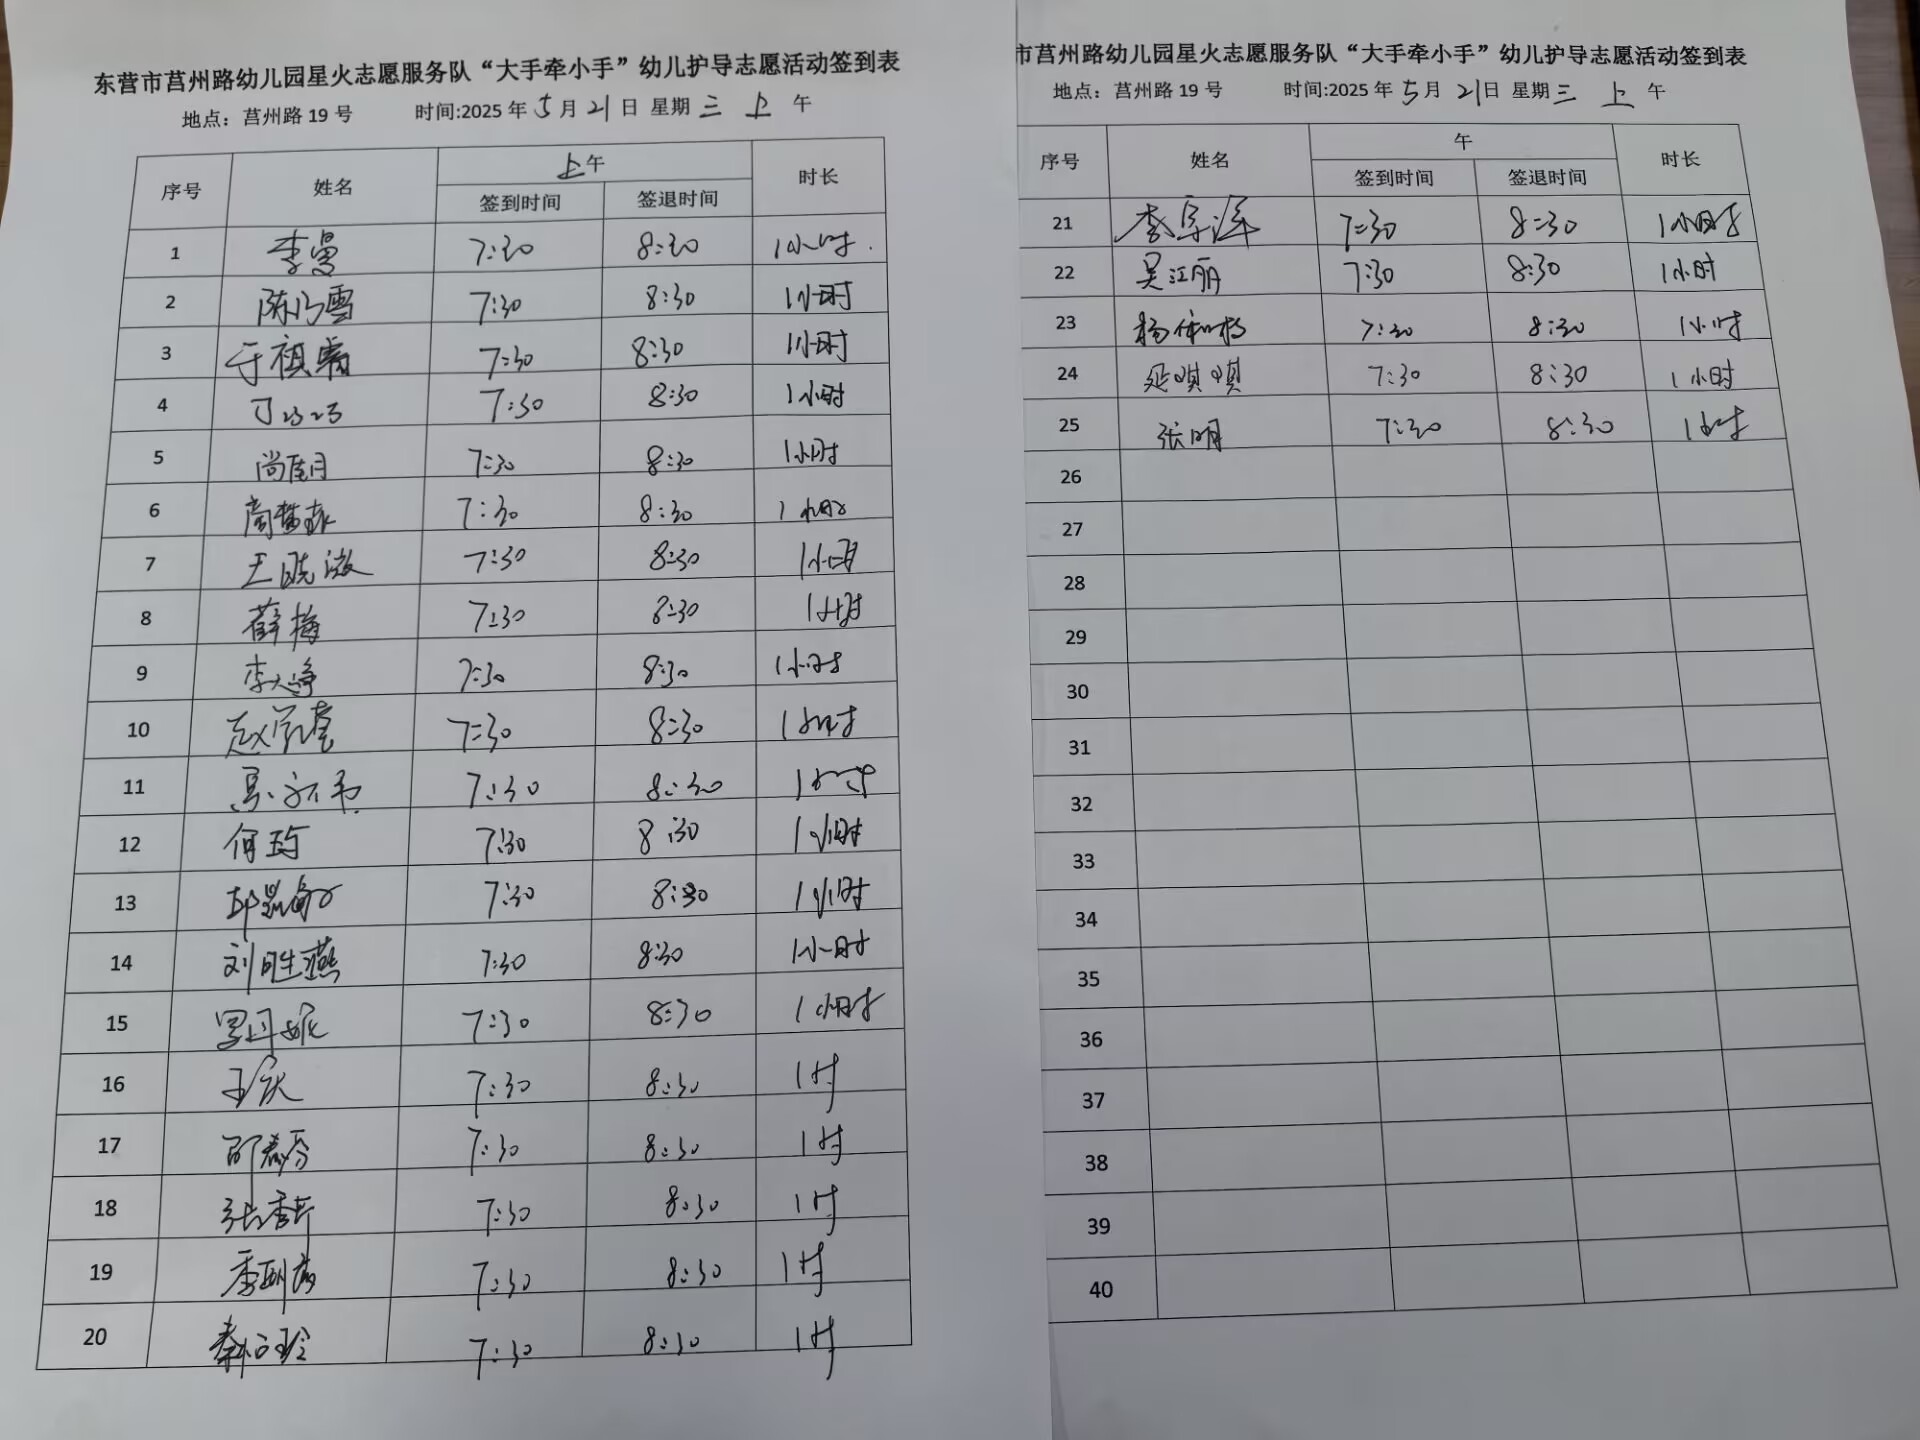 东营市莒州路幼儿园星火志愿服务队“大手牵小手”幼儿护导志愿活动签到表
地点：莒州路 19 号 时间:2025 年 5 月 21 日 星期 三 上 午
序号 姓名 上午 时长
签到时间 签退时间
1 李曼 7:30 8:30 1小时.
2 陈乃雪 7:30 8:30 1小时
3 于祖 7:30 8:30 1小时
4 丁 7:30 8:30 1小时
5 尚佳月 7:30 8:30 1小时
6 周梦 7:30 8:30 1小时
7 王晓波 7:30 8:30 1小时
8 薛梅 7:30 8:30 1小时
9 李 7:30 8:30 1小时
10 赵学莹 7:30 8:30 1小时
11 7:30 8:30 1小时
12 何玙 7:30 8:30 1小时
13 7:30 8:30 1小时
14 刘胜燕 7:30 8:30 1小时
15 罗丹妮 7:30 8:30 1小时
16 王庆 7:30 8:30 1时
17 邵春芬 7:30 8:30 1时
18 张秀 7:30 8:30 1时
19 季 7:30 8:30 1时
20 秦 玲 7:30 8:30 1时
市莒州路幼儿园星火志愿服务队“大手牵小手”幼儿护导志愿活动签到表
地点：莒州路 19 号 时间:2025 年 5 月 21 日 星期 三 上 午
序号 姓名 午 时长
签到时间 签退时间
21 李 7:30 8:30 1小时
22 吴江丽 7:30 8:30 1小时
23 杨 7:30 8:30 1小时
24 延琪琪 7:30 8:30 1小时
25 张明 7:30 8:30 1小时
26
27
28
29
30
31
32
33
34
35
36
37
38
39
40